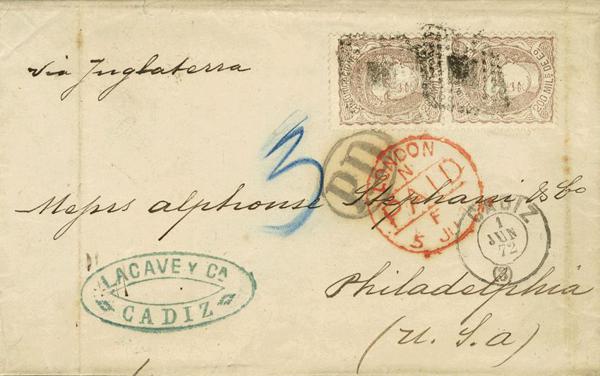 via Inglaterra
3
PD
LONDON
N
PAID
F
5 JU
Messrs alphonse Stephani & Co
CADIZ
1
JUN
72
(3)
LACAVE Y CA
CADIZ
Philadelphia
(U. S. a)